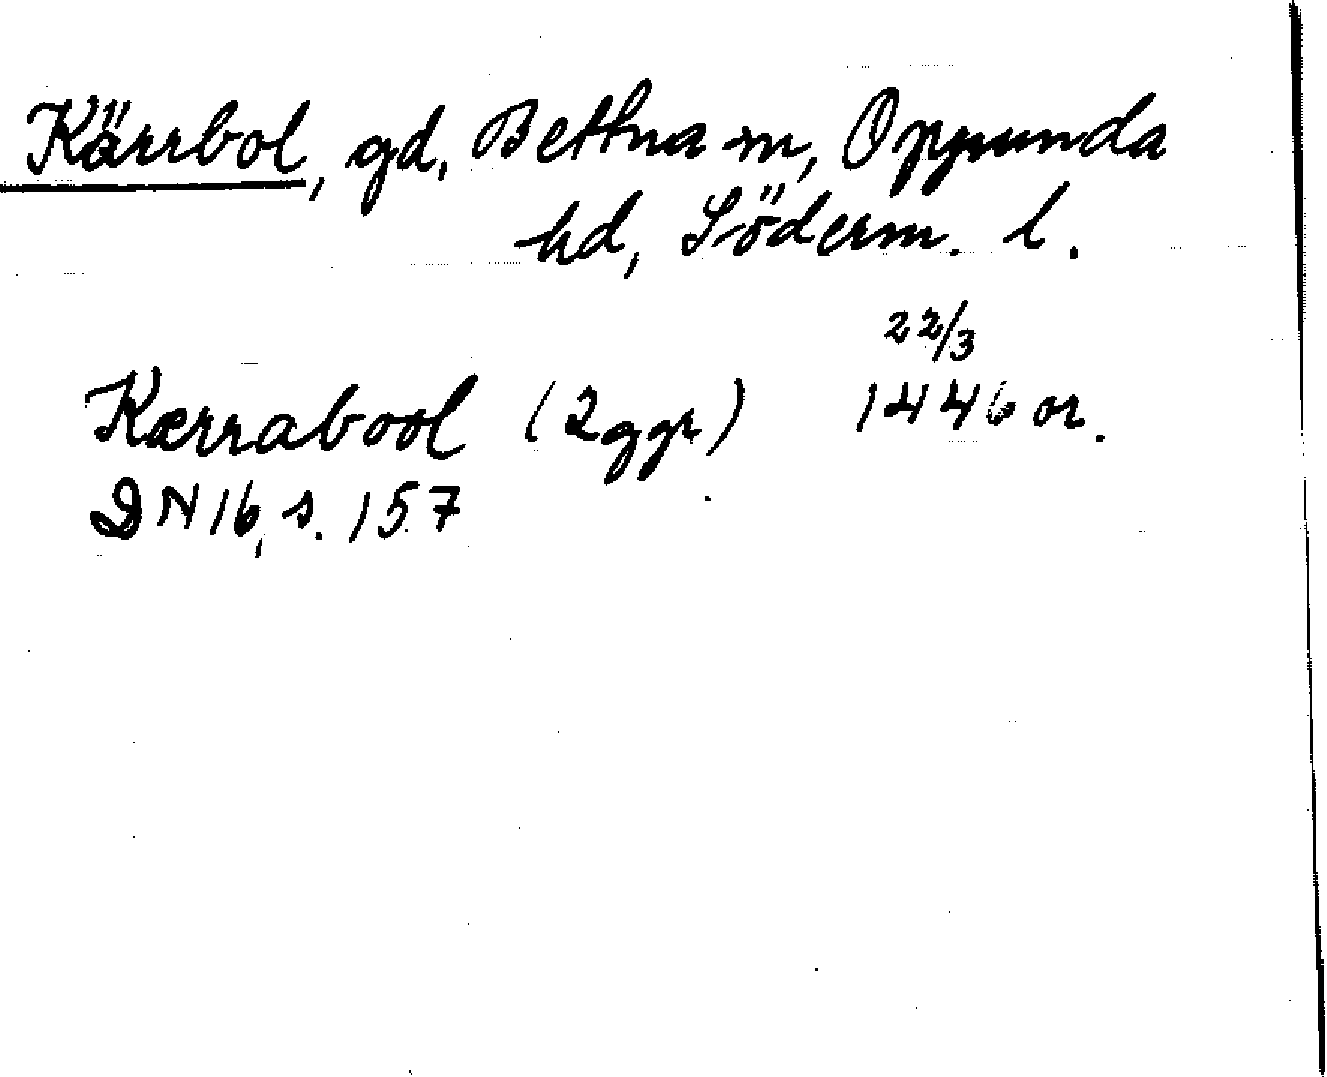 Kärrbol, gd, Bettna sn, Oppunda
hd, Söderm. l.
22/3
Kærrabool (2 ggr) 1446 or.
DN 16, s. 157